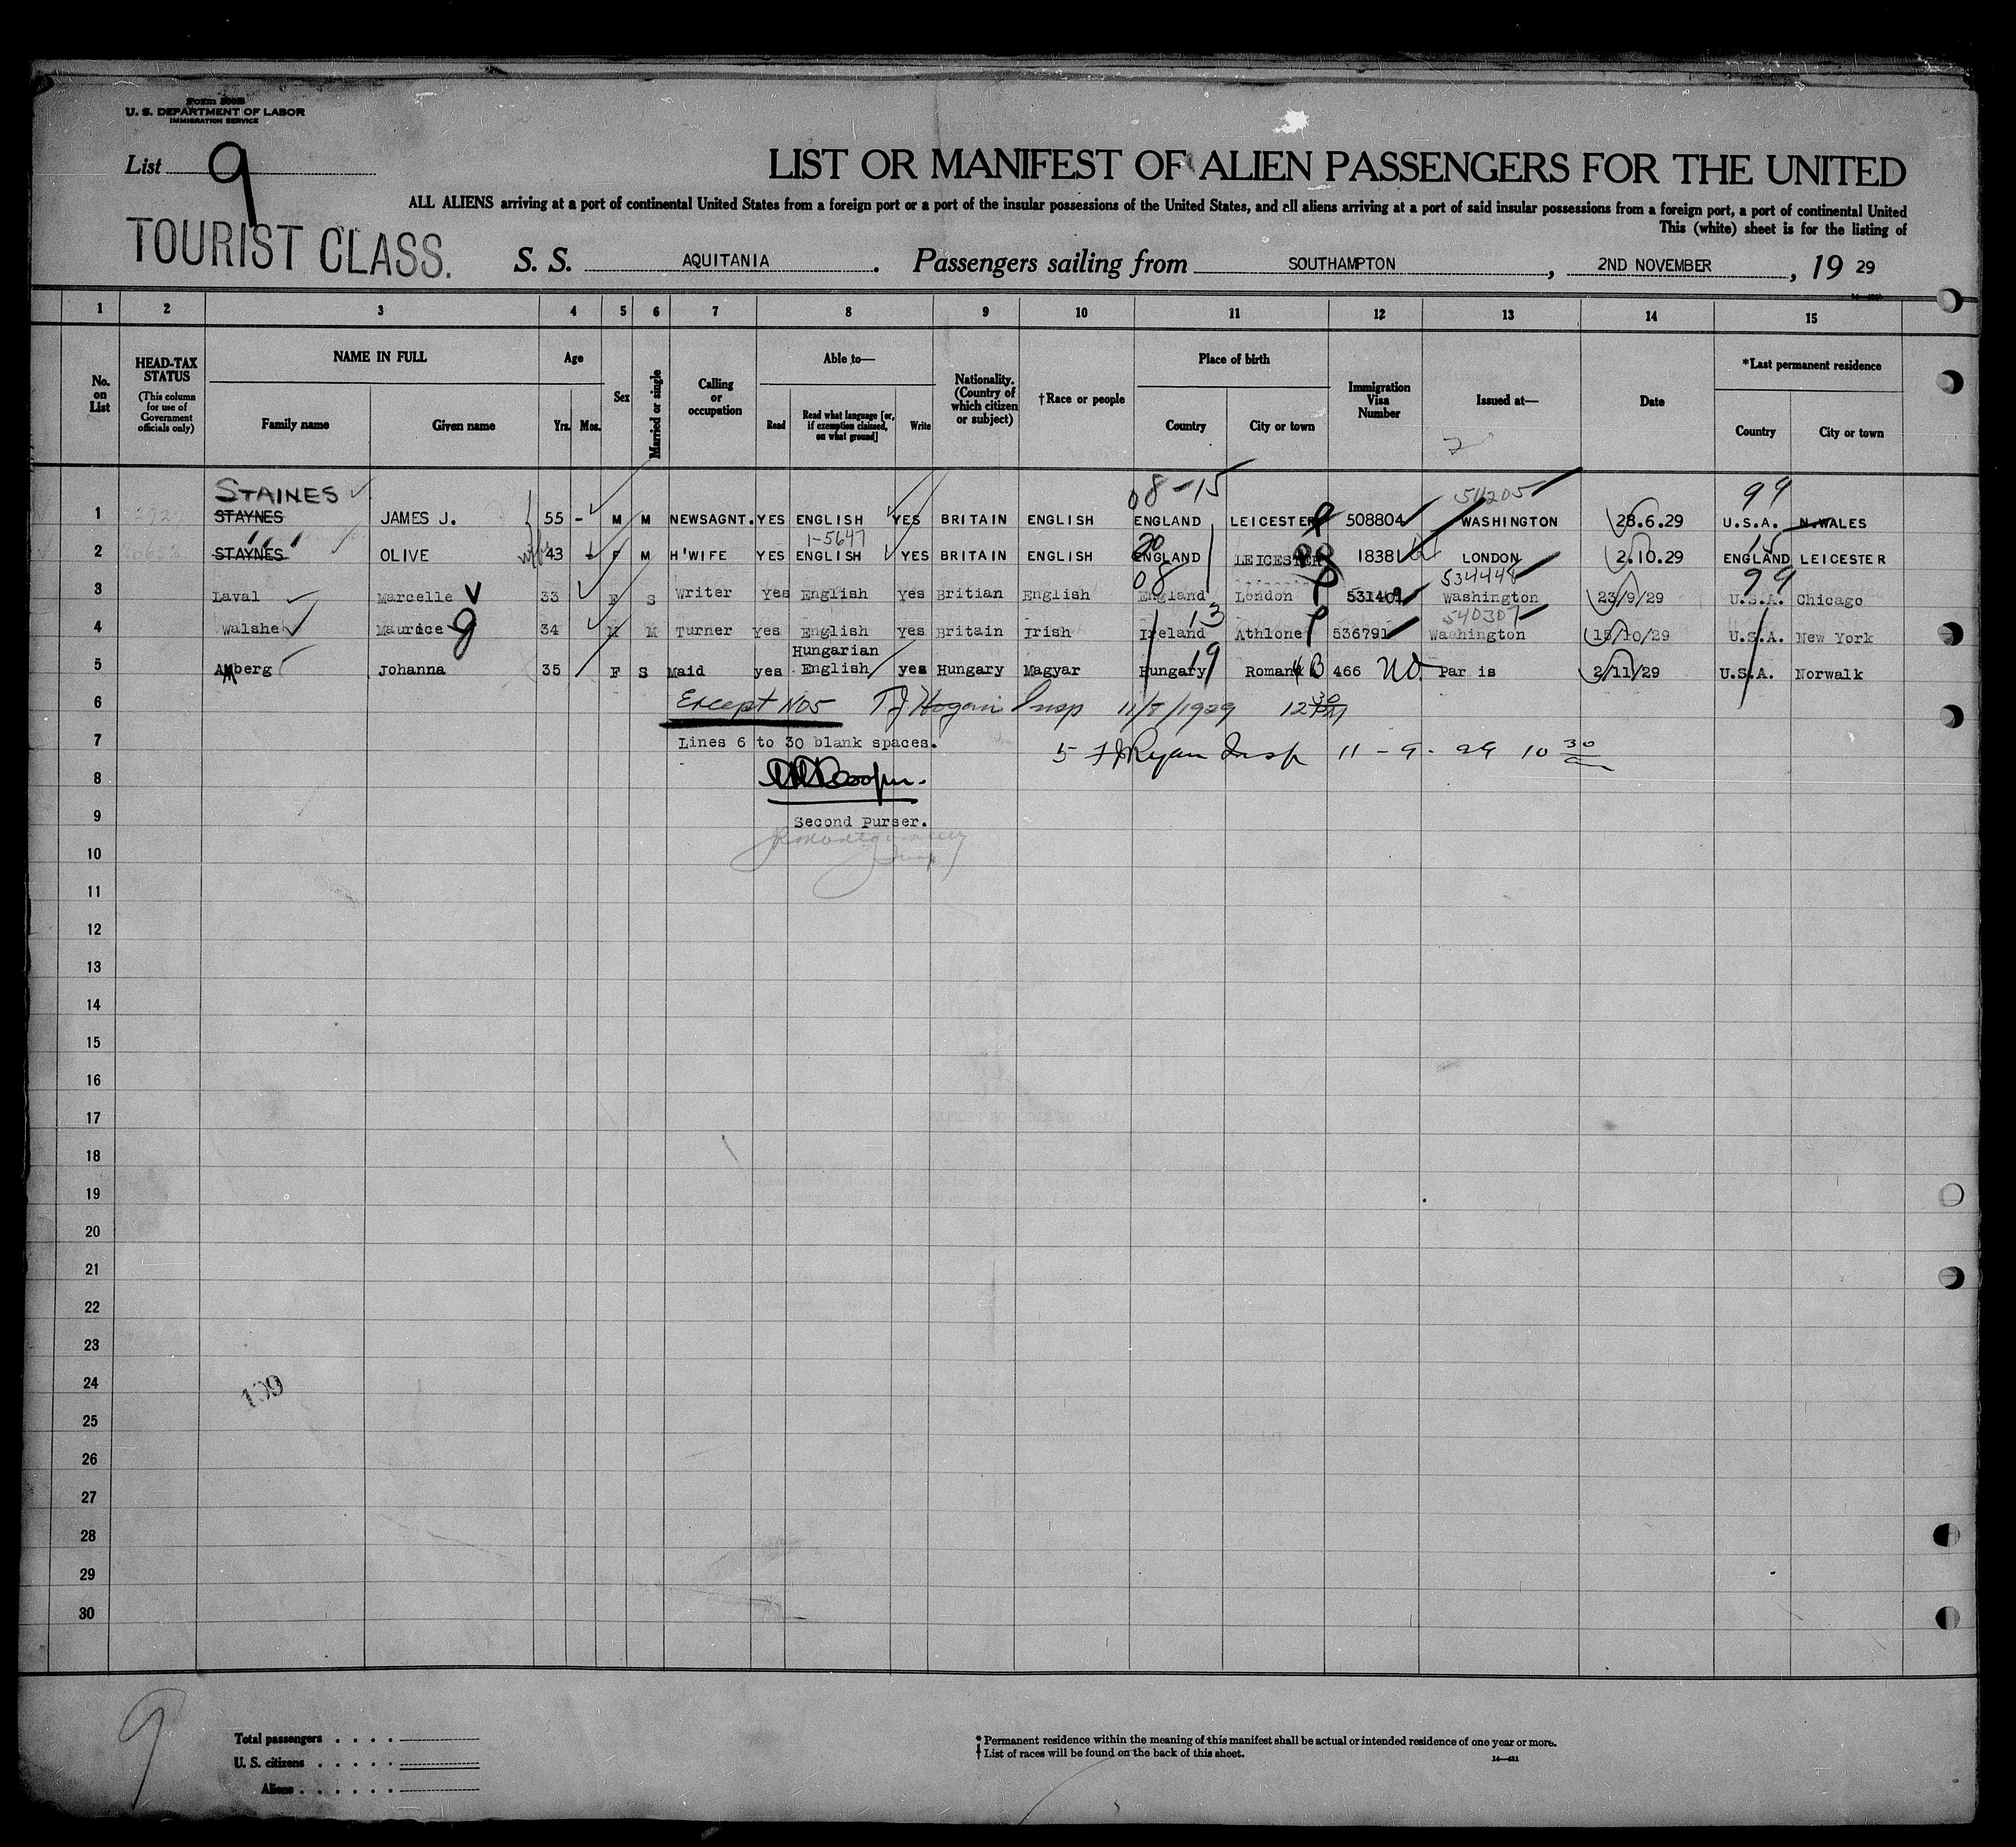 Form 500B
U. S. DEPARTMENT OF LABOR
IMMIGRATION SERVICE
List 9
LIST OR MANIFEST OF ALIEN PASSENGERS FOR THE UNITED
ALL ALIENS arriving at a port of continental United States from a foreign port or a port of the insular possessions of the United States, and all aliens arriving at a port of said insular possessions from a foreign port, a port of continental United
This (white) sheet is for the listing of
TOURIST CLASS.
S. S. AQUITANIA. Passengers sailing from SOUTHAMPTON, 2ND NOVEMBER, 19 29
1 2 3 4 5 6 7 8 9 10 11 12 13 14 15
No. on List
HEAD-TAX STATUS (This column for use of Government officials only)
NAME IN FULL Family name Given name
Age Yrs. Mos.
Sex
Married or single
Calling or occupation
Able to— Read Read what language [or, if exemption claimed, on what ground] Write
Nationality. (Country of which citizen or subject)
†Race or people
Place of birth Country City or town
Immigration Visa Number
Issued at—
Date
*Last permanent residence Country City or town
STAINES 08-15 511205 99
1 STAYNES JAMES J. 55 - M M NEWSAGNT. YES ENGLISH YES BRITAIN ENGLISH ENGLAND LEICESTER 508804 WASHINGTON 28.6.29 U.S.A. N.WALES
1-5647 20 15
2 STAYNES OLIVE wife 43 - F M H'WIFE YES ENGLISH YES BRITAIN ENGLISH ENGLAND LEICESTER 18381 LONDON 2.10.29 ENGLAND LEICESTER
08 534448 99
3 Laval Marcelle V 33 F S Writer Yes English Yes Britian English England London 531409 Washington 23/9/29 U.S.A. Chicago
13 540307
4 Walshe Maurice g 34 M M Turner Yes English Yes Britain Irish Ireland Athlone 536791 Washington 15/10/29 U.S.A. New York
Hungarian 19
5 Amberg Johanna 35 F S Maid yes English yes Hungary Magyar Hungary Romand 466 Par is 2/11/29 U.S.A. Norwalk
6 Except No5 TJ Hogan Insp 11/8/1929 12 30 PM
7 Lines 6 to 30 blank spaces.
5 - Ryan Insp 11 - 9 - 29 10 30
8
9 Second Purser.
10
11
12
13
14
15
16
17
18
19
20
21
22
23
24
25
26
27
28
29
30
9
Total passengers
U. S. citizens
Aliens
* Permanent residence within the meaning of this manifest shall be actual or intended residence of one year or more.
† List of races will be found on the back of this sheet.